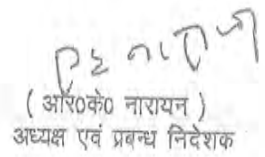 ( आर0के0 नारायन )
अध्यक्ष एवं प्रबन्ध निदेशक